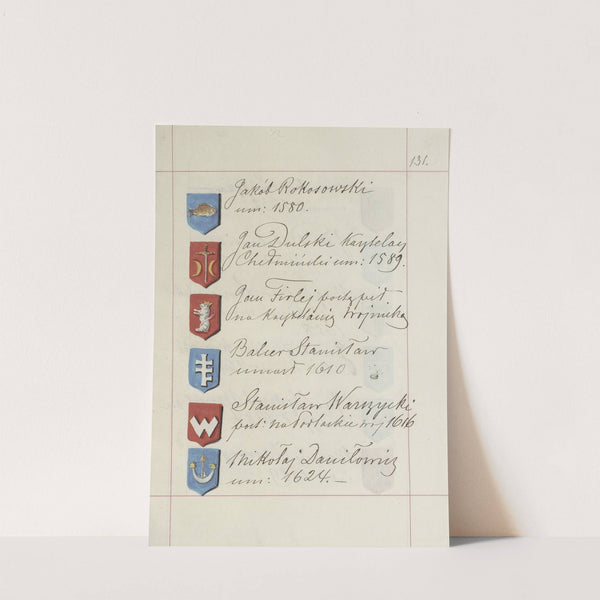 131.
Jakób Rokosowski
um: 1580.
Jan Dulski Kasztelan
Chełmiński um: 1589.
Jan Firlej postąpił
na Kasztelanię Wojnicką
Balcer Stanisław
umarł 1610
Stanisław Warszycki
post: na Podlaskie woj 1616
Mikołaj Daniłowicz
um: 1624. —